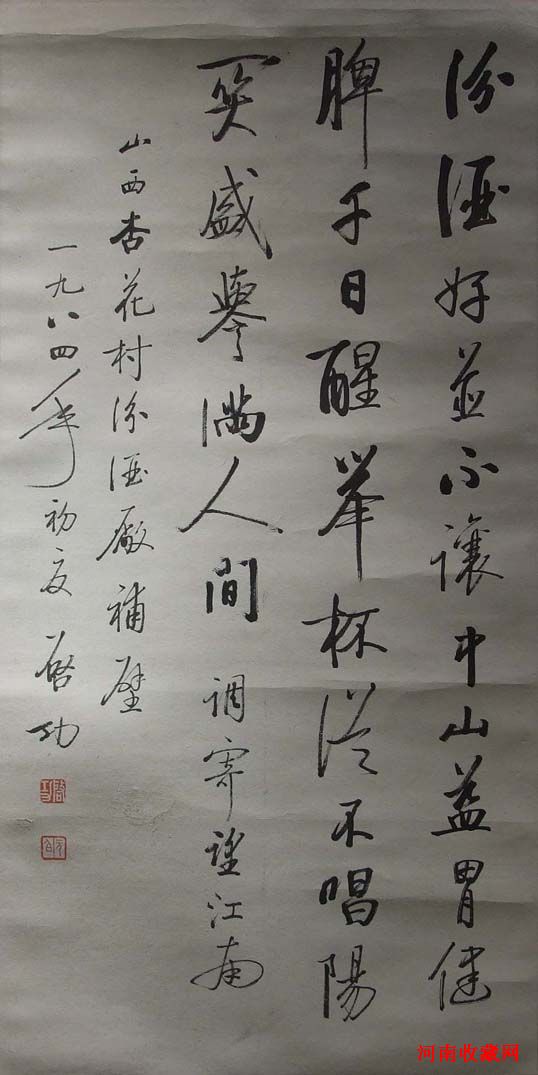 汾酒好並不讓中山益胃健
脾千日醒举杯從不唱陽
関盛譽滿人間 調寄望江南
山西杏花村汾酒廠補壁
一九八四年初夏 啓功
河南收藏网